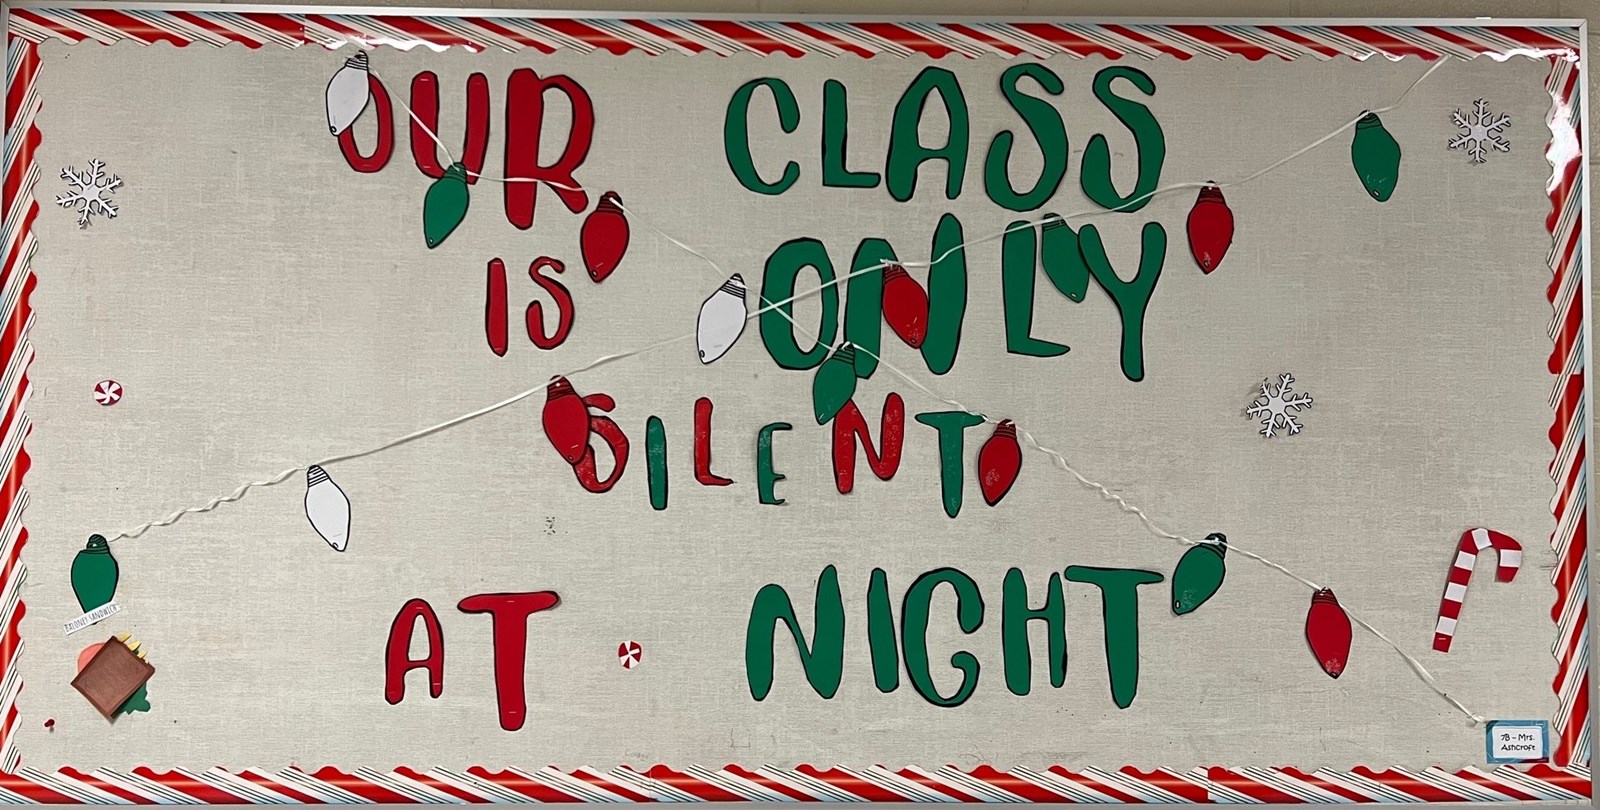 OUR CLASS
IS ONLY
SILENT
AT NIGHT
BALONEY SANDWICH
7B - Mrs.
Ashcroft